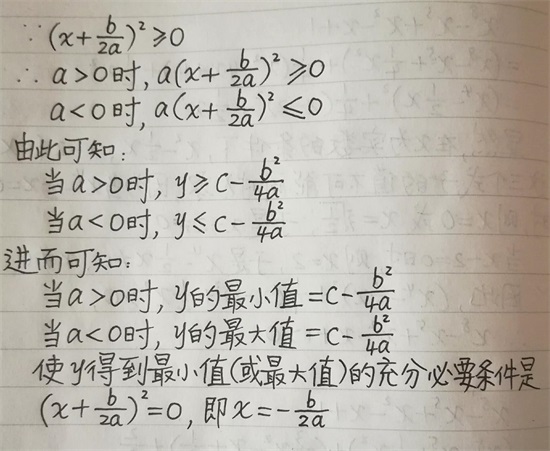 ∵ (x+b/2a)²≥0
∴ a>0时, a(x+b/2a)²≥0
a<0时, a(x+b/2a)²≤0
由此可知:
当a>0时, y≥c-b²/4a
当a<0时, y≤c-b²/4a
进而可知:
当a>0时, y的最小值=c-b²/4a
当a<0时, y的最大值=c-b²/4a
使y得到最小值(或最大值)的充分必要条件是
(x+b/2a)²=0, 即x=-b/2a